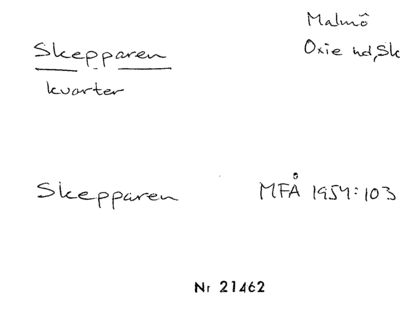 Malmö
Skepparen
Oxie hd, Sk
kvarter
Skepparen
MFÅ 1954:103
Nr 21462